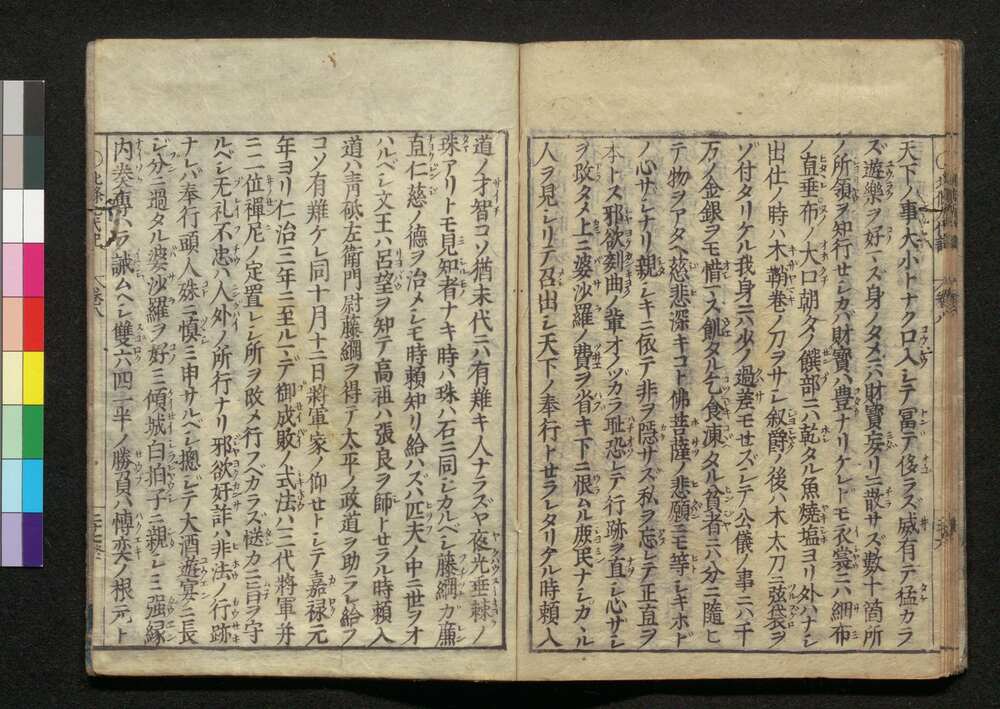 天下ノ事大小トナク口入シテ冨テ侈ラズ威有テ猛カラ
ズ遊樂ヲ好マス身ノタメニハ財寶妄リニ散サズ数十箇所
ノ所領ヲ知行セシカバ財寶ハ豊ナリケレドモ衣裳ニハ細布
ノ直垂布ノ大口朝夕ノ饌部ニハ乾タル魚焼塩ヨリ外ハナシ
出仕ノ時ハ木鞘巻ノ刀ヲサシ叙爵ノ後ハ木太刀ニ弦袋ヲ
ゾ付タリケル我身ニハ少ノ過差モセズシテ公儀ノ事ニハ千
万ノ金銀ヲモ惜マス飢タル乞食凍タル貧者ニハ分ニ隨ヒ
テ物ヲアタヘ慈悲深キコト佛菩薩ノ悲願ニモ等シキホド
ノ心サシナリ親シキニ依テ非ヲ隠サズ私ヲ忘レテ正直ヲ
本トス邪欲刻曲ノ輩オノツカラ恥恐レテ行跡ヲ直シ心サシ
ヲ改タメ上ニ婆沙羅ノ費ヲ省キ下ニ恨ムル庶民ナシカヽル
人ラ見シリテ召出シ天下ノ奉行トセラレタリケル時頼入
道ノ才智コソ猶末代ニハ有難キ人ナラズヤ夜光垂棘ノ
珠アリトモ見知者ナキ時ハ珠ハ石ニ同シカルベシ藤綱カ廉
直仁慈ノ德ヲ治メシモ時頼知リ給ハズバ匹夫ノ中ニ世ヲオ
ハルベシ文王ハ呂望ヲ知テ高祖ハ張良ヲ師トセラル時頼入
道ハ青砥左衛門尉藤綱ヲ得テ太平ノ政道ヲ助ラレ給フ
コソ有難ケレ同十月十二日將軍家ノ仰セトシテ嘉禄元
年ヨリ仁治三年ニ至ルマデ御成敗ノ式法ハ三代將軍并
ニ二位禪尼ノ定置レシ所ヲ改メ行フベカラズ送カニ是ヲ守
ルベシ无礼不忠ハ人外ノ所行ナリ邪欲好詐ハ非法ノ行跡
ナレバ奉行頭人殊ニ慎ミ申サルベシ摠ジテ大酒遊宴ニ長
ジ分ニ過タル婆沙羅ヲ好ミ傾城白拍子ニ親シミ強縁
内奏傳ハラ誡ムヘシ雙六四一半ノ勝負ハ博奕ノ根元ト